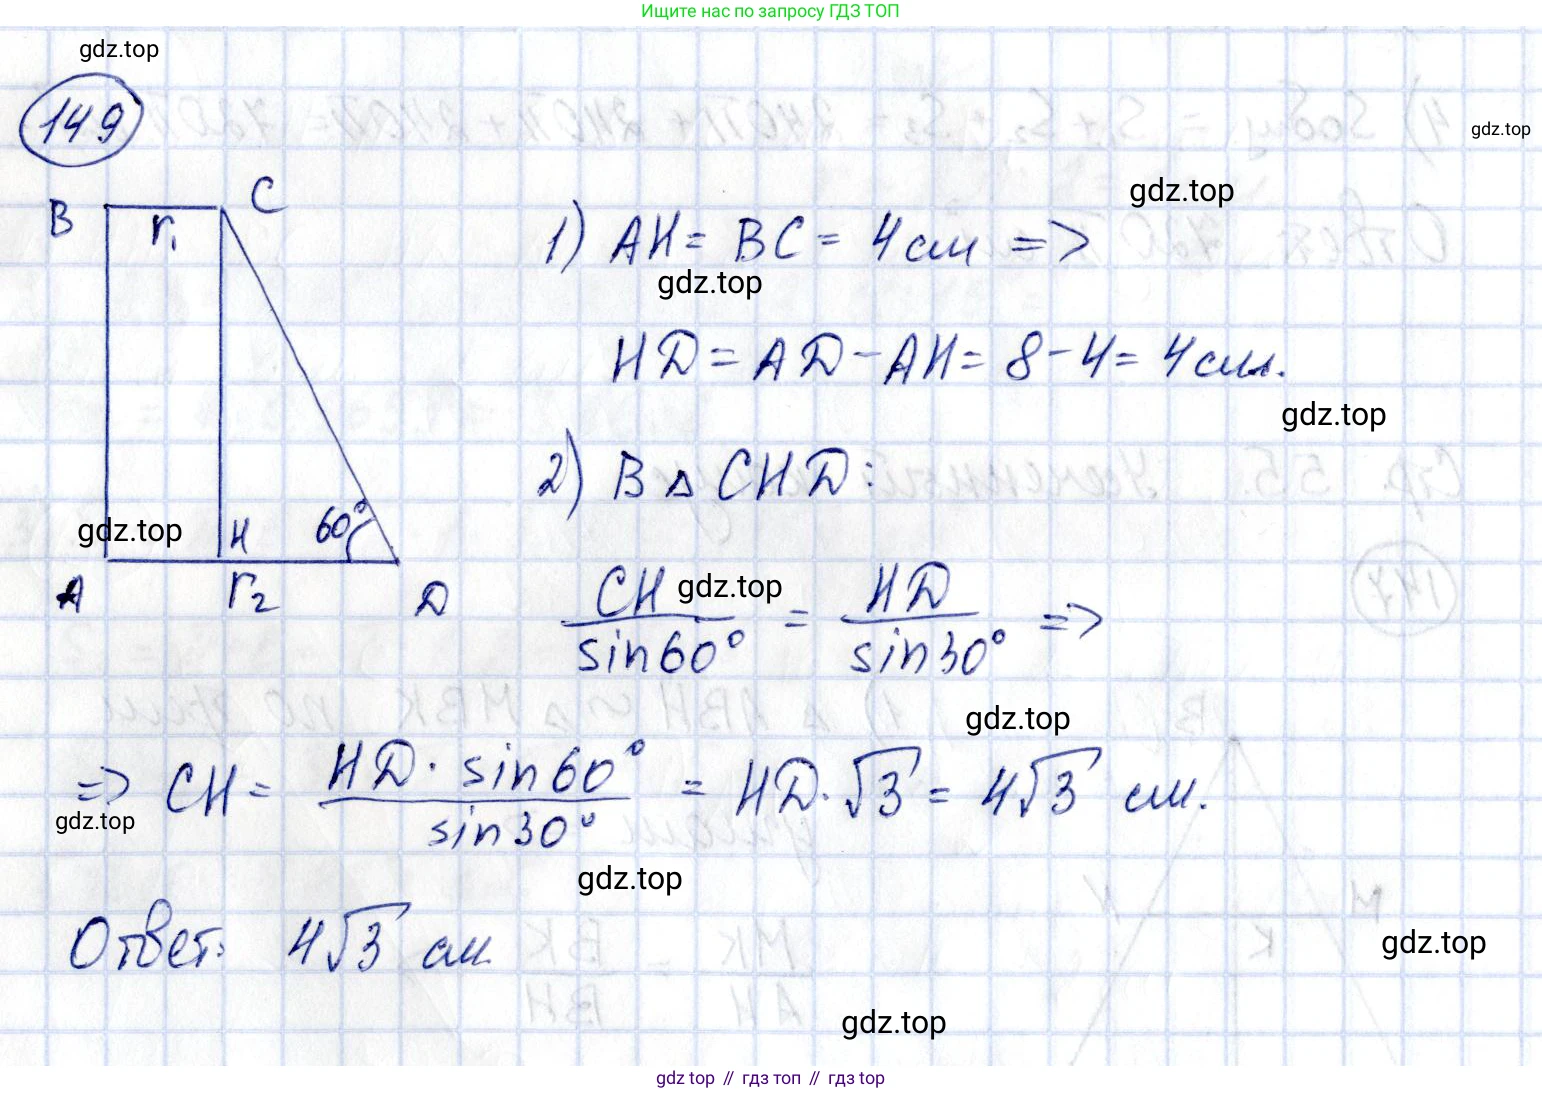 Ищите нас по запросу ГДЗ ТОП
gdz.top
149
gdz.top
gdz.top
B r₁ C
1) AH = BC = 4 см =>
gdz.top
HD = AD - AH = 8 - 4 = 4 см.
gdz.top
2) В △ CHD:
gdz.top
H 60°
A r₂ D
CH / sin60° = HD / sin30° =>
gdz.top
gdz.top
=> CH = HD · sin60° / sin30° = HD · √3 = 4√3 см.
gdz.top
gdz.top
Ответ: 4√3 см.
gdz.top
gdz.top
gdz top // гдз топ // gdz top